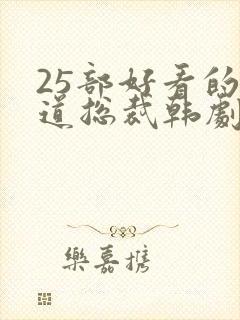 25部好看的
道总裁韩劇
樂嘉携